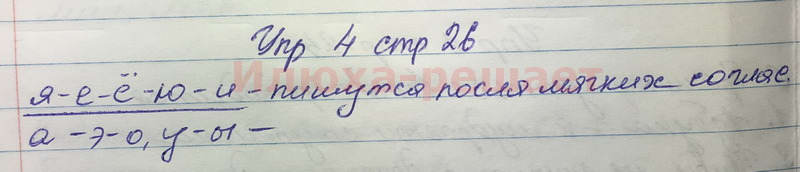 Упр 4 стр 26
Илюха-решает
я-е-ё-ю-и - пишутся после мягких соглас.
а -э-о, у-ы -